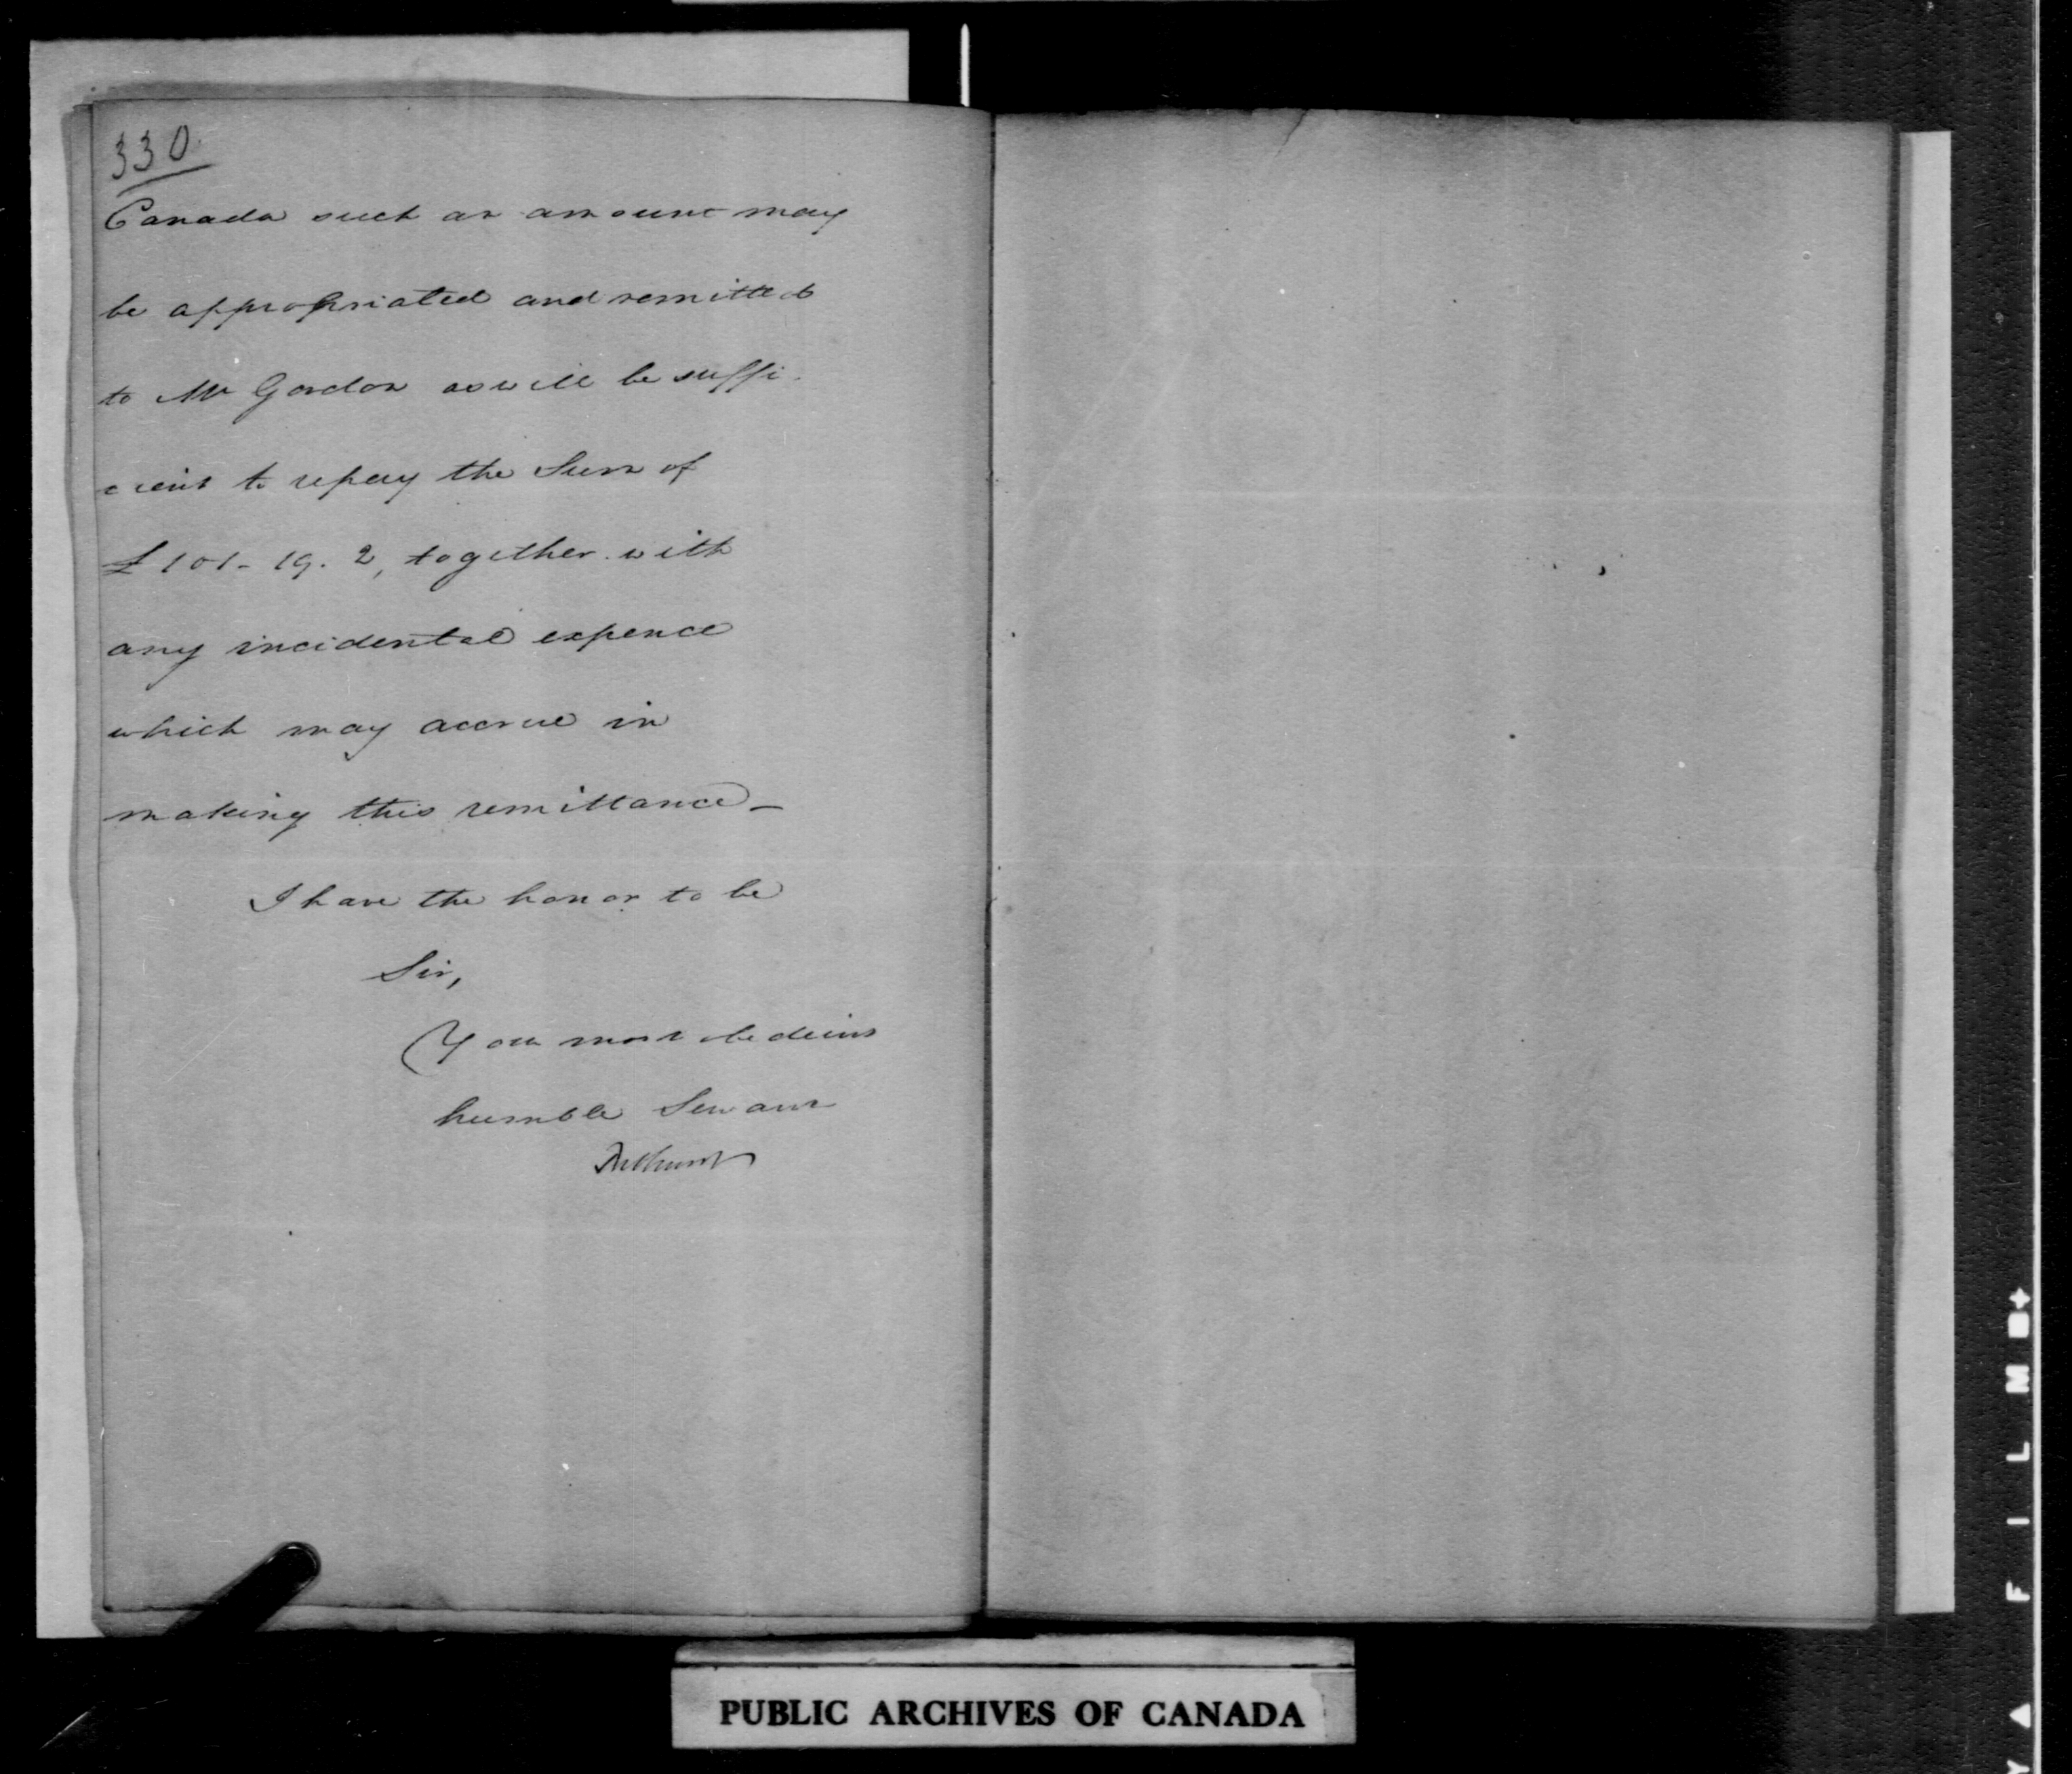 330.
Canada such an amount may
be appropriated and remitted
to Mr Gordon as will be suffi-
cient to repay the Sum of
£101-19.2, together with
any incidental expence
which may accrue in
making this remittance_
I have the honor to be
Sir,
Your most obedient
humble Servant
Bathurst
PUBLIC ARCHIVES OF CANADA
F I L M
Y